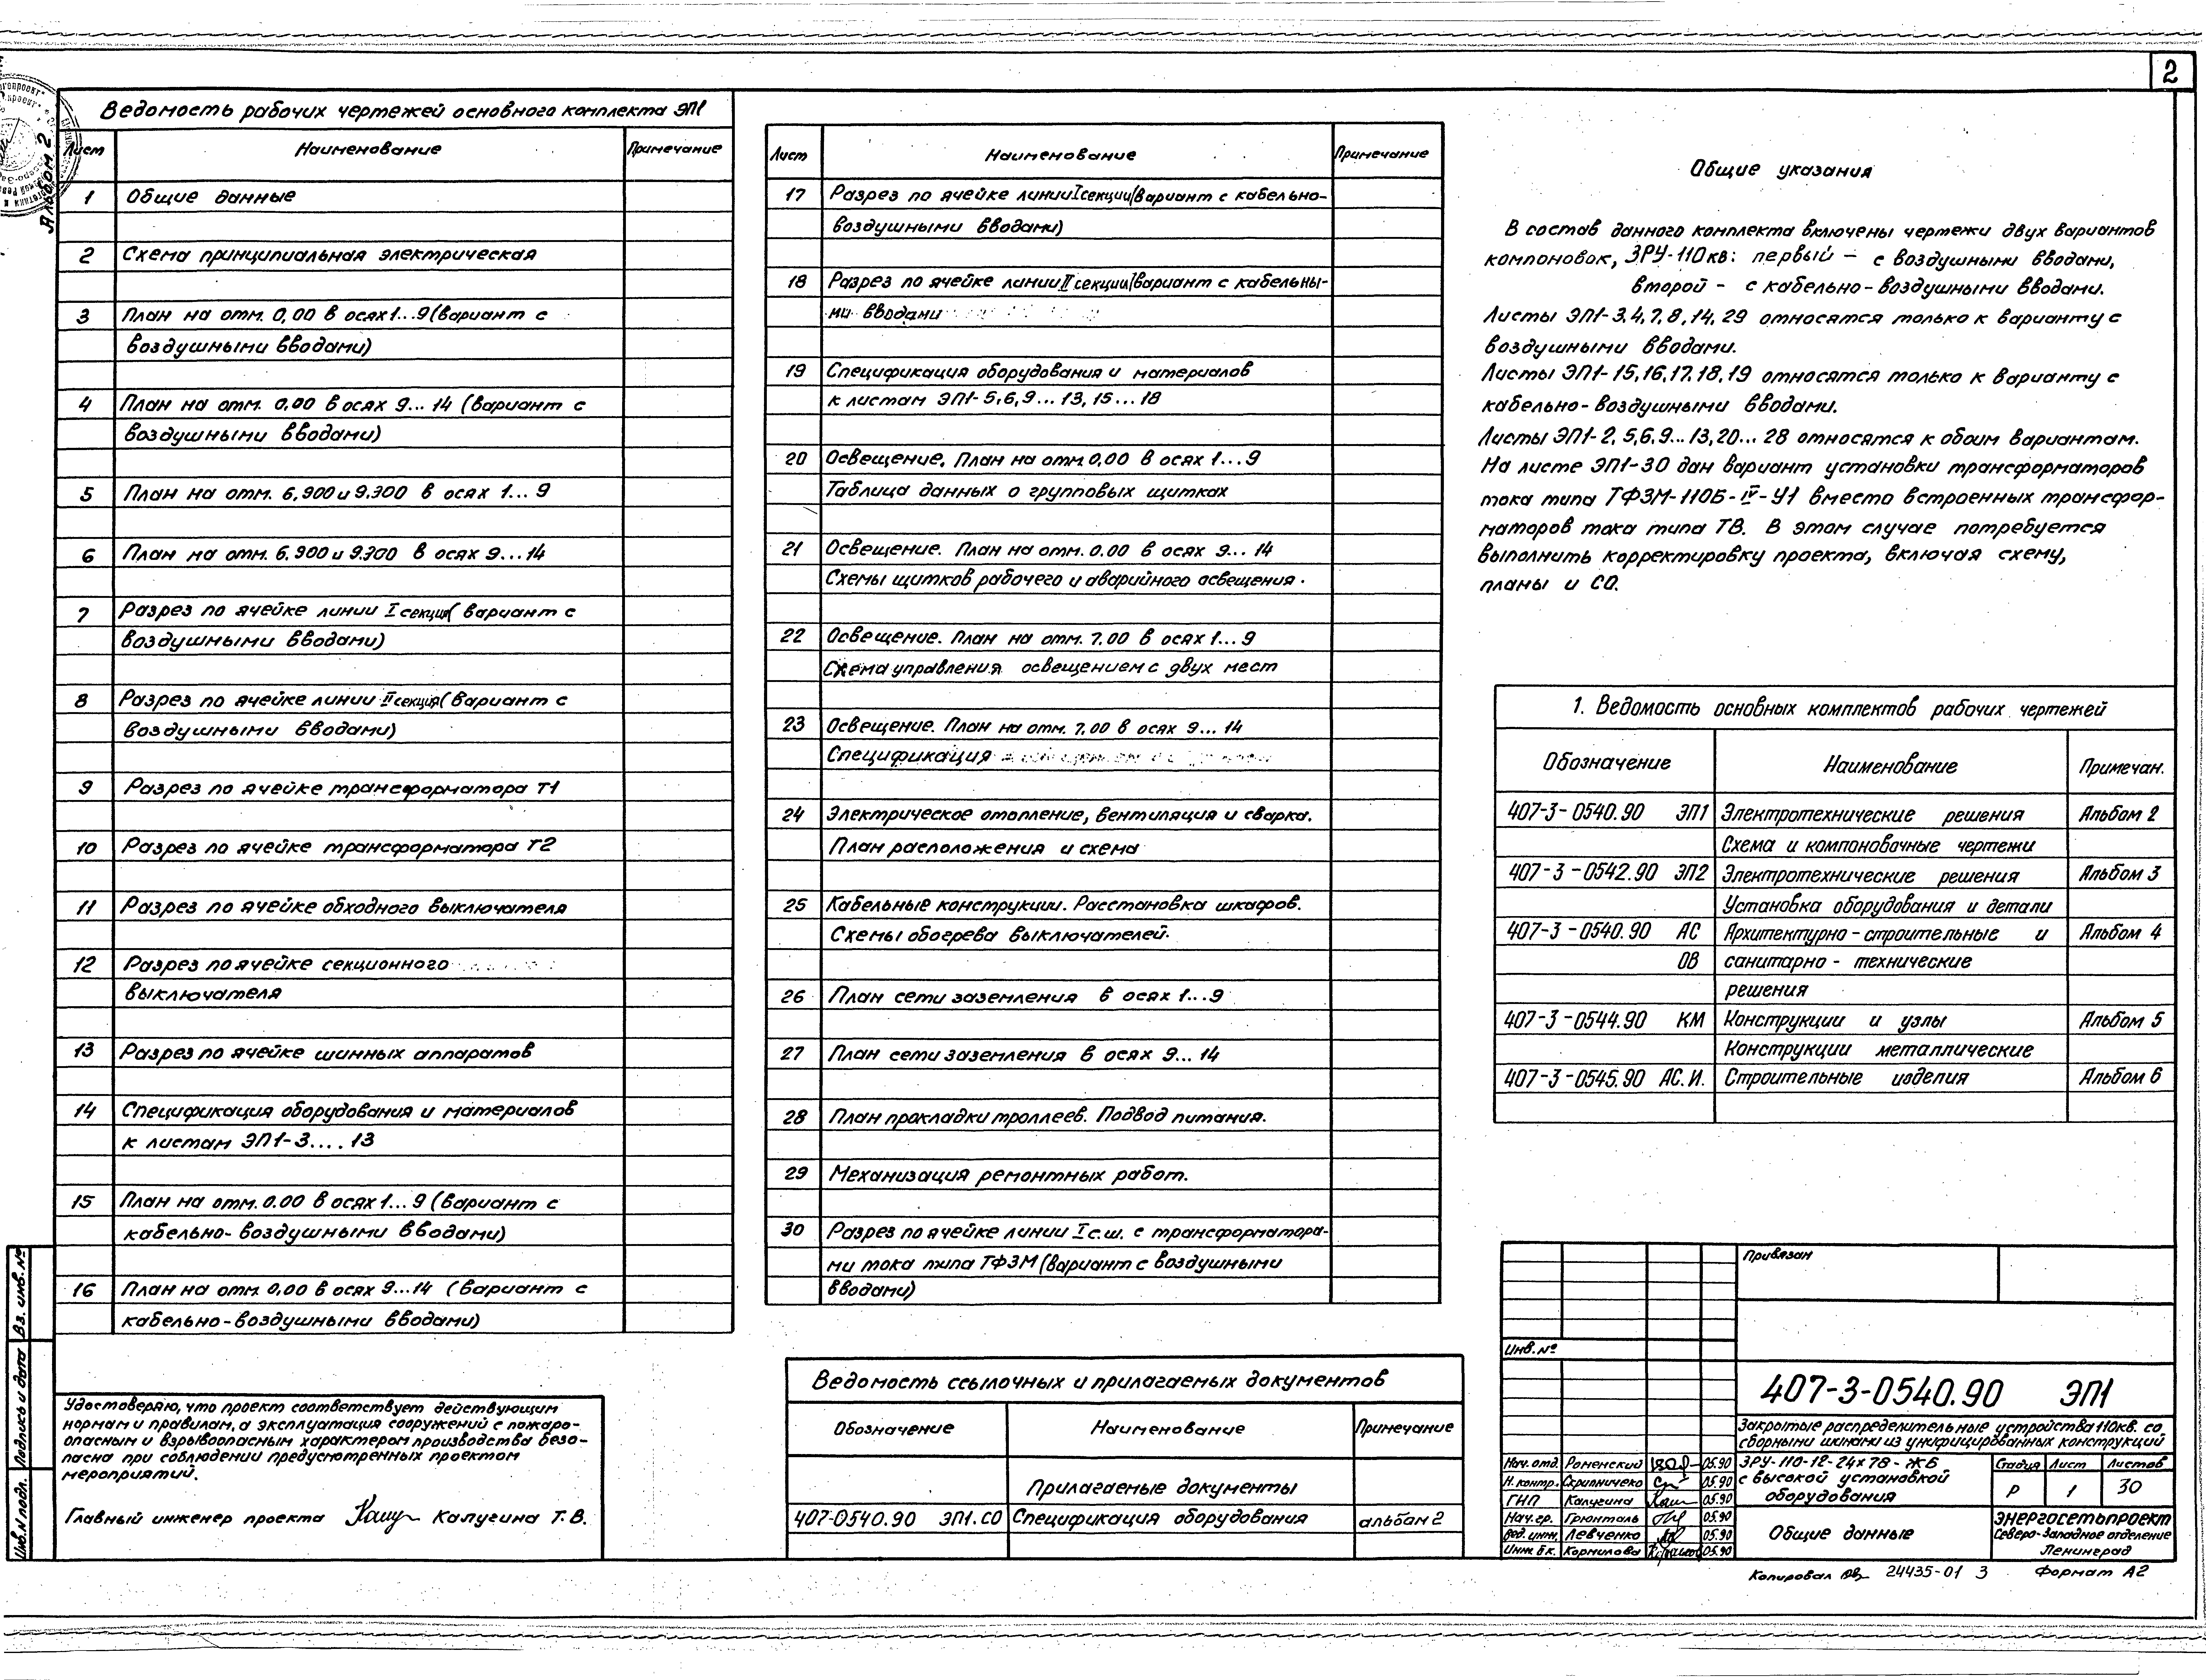 2
Альбом 2
Ведомость рабочих чертежей основного комплекта ЭП1
Лист Наименование Примечание
1 Общие данные
2 Схема принципиальная электрическая
3 План на отм. 0,00 в осях 1...9 (вариант с
воздушными вводами)
4 План на отм. 0,00 в осях 9...14 (вариант с
воздушными вводами)
5 План на отм. 6.900 и 9.300 в осях 1...9
6 План на отм. 6.900 и 9.300 в осях 9...14
7 Разрез по ячейке линии I секция (вариант с
воздушными вводами)
8 Разрез по ячейке линии II секция (вариант с
воздушными вводами)
9 Разрез по ячейке трансформатора Т1
10 Разрез по ячейке трансформатора Т2
11 Разрез по ячейке обходного выключателя
12 Разрез по ячейке секционного
выключателя
13 Разрез по ячейке шинных аппаратов
14 Спецификация оборудования и материалов
к листам ЭП1-3....13
15 План на отм. 0.00 в осях 1...9 (вариант с
кабельно-воздушными вводами)
16 План на отм. 0,00 в осях 9...14 (вариант с
кабельно-воздушными вводами)
Лист Наименование Примечание
17 Разрез по ячейке линии I секции (вариант с кабельно-
воздушными вводами)
18 Разрез по ячейке линии II секции (вариант с кабельны-
ми вводами
19 Спецификация оборудования и материалов
к листам ЭП1-5,6,9...13,15...18
20 Освещение. План на отм. 0,00 в осях 1...9
Таблица данных о групповых щитках
21 Освещение. План на отм. 0.00 в осях 9...14
Схемы щитков рабочего и аварийного освещения.
22 Освещение. План на отм. 7.00 в осях 1...9
Схема управления освещением с двух мест
23 Освещение. План на отм. 7.00 в осях 9...14
Спецификация
24 Электрическое отопление, вентиляция и сварка.
План расположения и схема
25 Кабельные конструкции. Расстановка шкафов.
Схемы обогрева выключателей.
26 План сети заземления в осях 1...9
27 План сети заземления в осях 9...14
28 План прокладки троллеев. Подвод питания.
29 Механизация ремонтных работ.
30 Разрез по ячейке линии I с.ш. с трансформатора-
ми тока типа ТФЗМ (вариант с воздушными
вводами)
Общие указания
В состав данного комплекта включены чертежи двух вариантов
компоновок, ЗРУ-110кв: первый - с воздушными вводами,
второй - с кабельно-воздушными вводами.
Листы ЭП1-3,4,7,8,14,29 относятся только к варианту с
воздушными вводами.
Листы ЭП1-15,16,17,18,19 относятся только к варианту с
кабельно-воздушными вводами.
Листы ЭП1-2,5,6,9...13,20...28 относятся к обоим вариантам.
На листе ЭП1-30 дан вариант установки трансформаторов
тока типа ТФЗМ-110Б-IV-У1 вместо встроенных трансфор-
маторов тока типа ТВ. В этом случае потребуется
выполнить корректировку проекта, включая схему,
планы и СО.
1. Ведомость основных комплектов рабочих чертежей
Обозначение Наименование Примечан.
407-3-0540.90 ЭП1 Электротехнические решения Альбом 2
Схема и компоновочные чертежи
407-3-0542.90 ЭП2 Электротехнические решения Альбом 3
Установка оборудования и детали
407-3-0540.90 АС Архитектурно-строительные и Альбом 4
ОВ санитарно-технические
решения
407-3-0544.90 КМ Конструкции и узлы Альбом 5
Конструкции металлические
407-3-0545.90 АС.И. Строительные изделия Альбом 6
Вз. инв. №
Подпись и дата
Инв. N подл.
Удостоверяю, что проект соответствует действующим
нормам и правилам, а эксплуатация сооружений с пожаро-
опасным и взрывоопасным характером производства безо-
пасна при соблюдении предусмотренных проектом
мероприятий.
Главный инженер проекта Калугина Т.В.
Ведомость ссылочных и прилагаемых документов
Обозначение Наименование Примечание
Прилагаемые документы
407-0540.90 ЭП1.СО Спецификация оборудования альбом 2
Привязан
Инв. №
407-3-0540.90 ЭП1
Закрытые распределительные устройства 110кв. со
сборными шинами из унифицированных конструкций
Нач. отд. Роменский 05.90
Н. контр. Скрипниченко 05.90
ГИП Калугина 05.90
Нач. гр. Грюнталь 05.90
Вед. инж. Левченко 05.90
Инж. Iк. Корнилова 05.90
ЗРУ-110-12-24х78-ЖБ
с высокой установкой
оборудования
Стадия Лист Листов
Р 1 30
Общие данные
Энергосетьпроект
Северо-Западное отделение
Ленинград
Копировал 24435-01 3 Формат А2